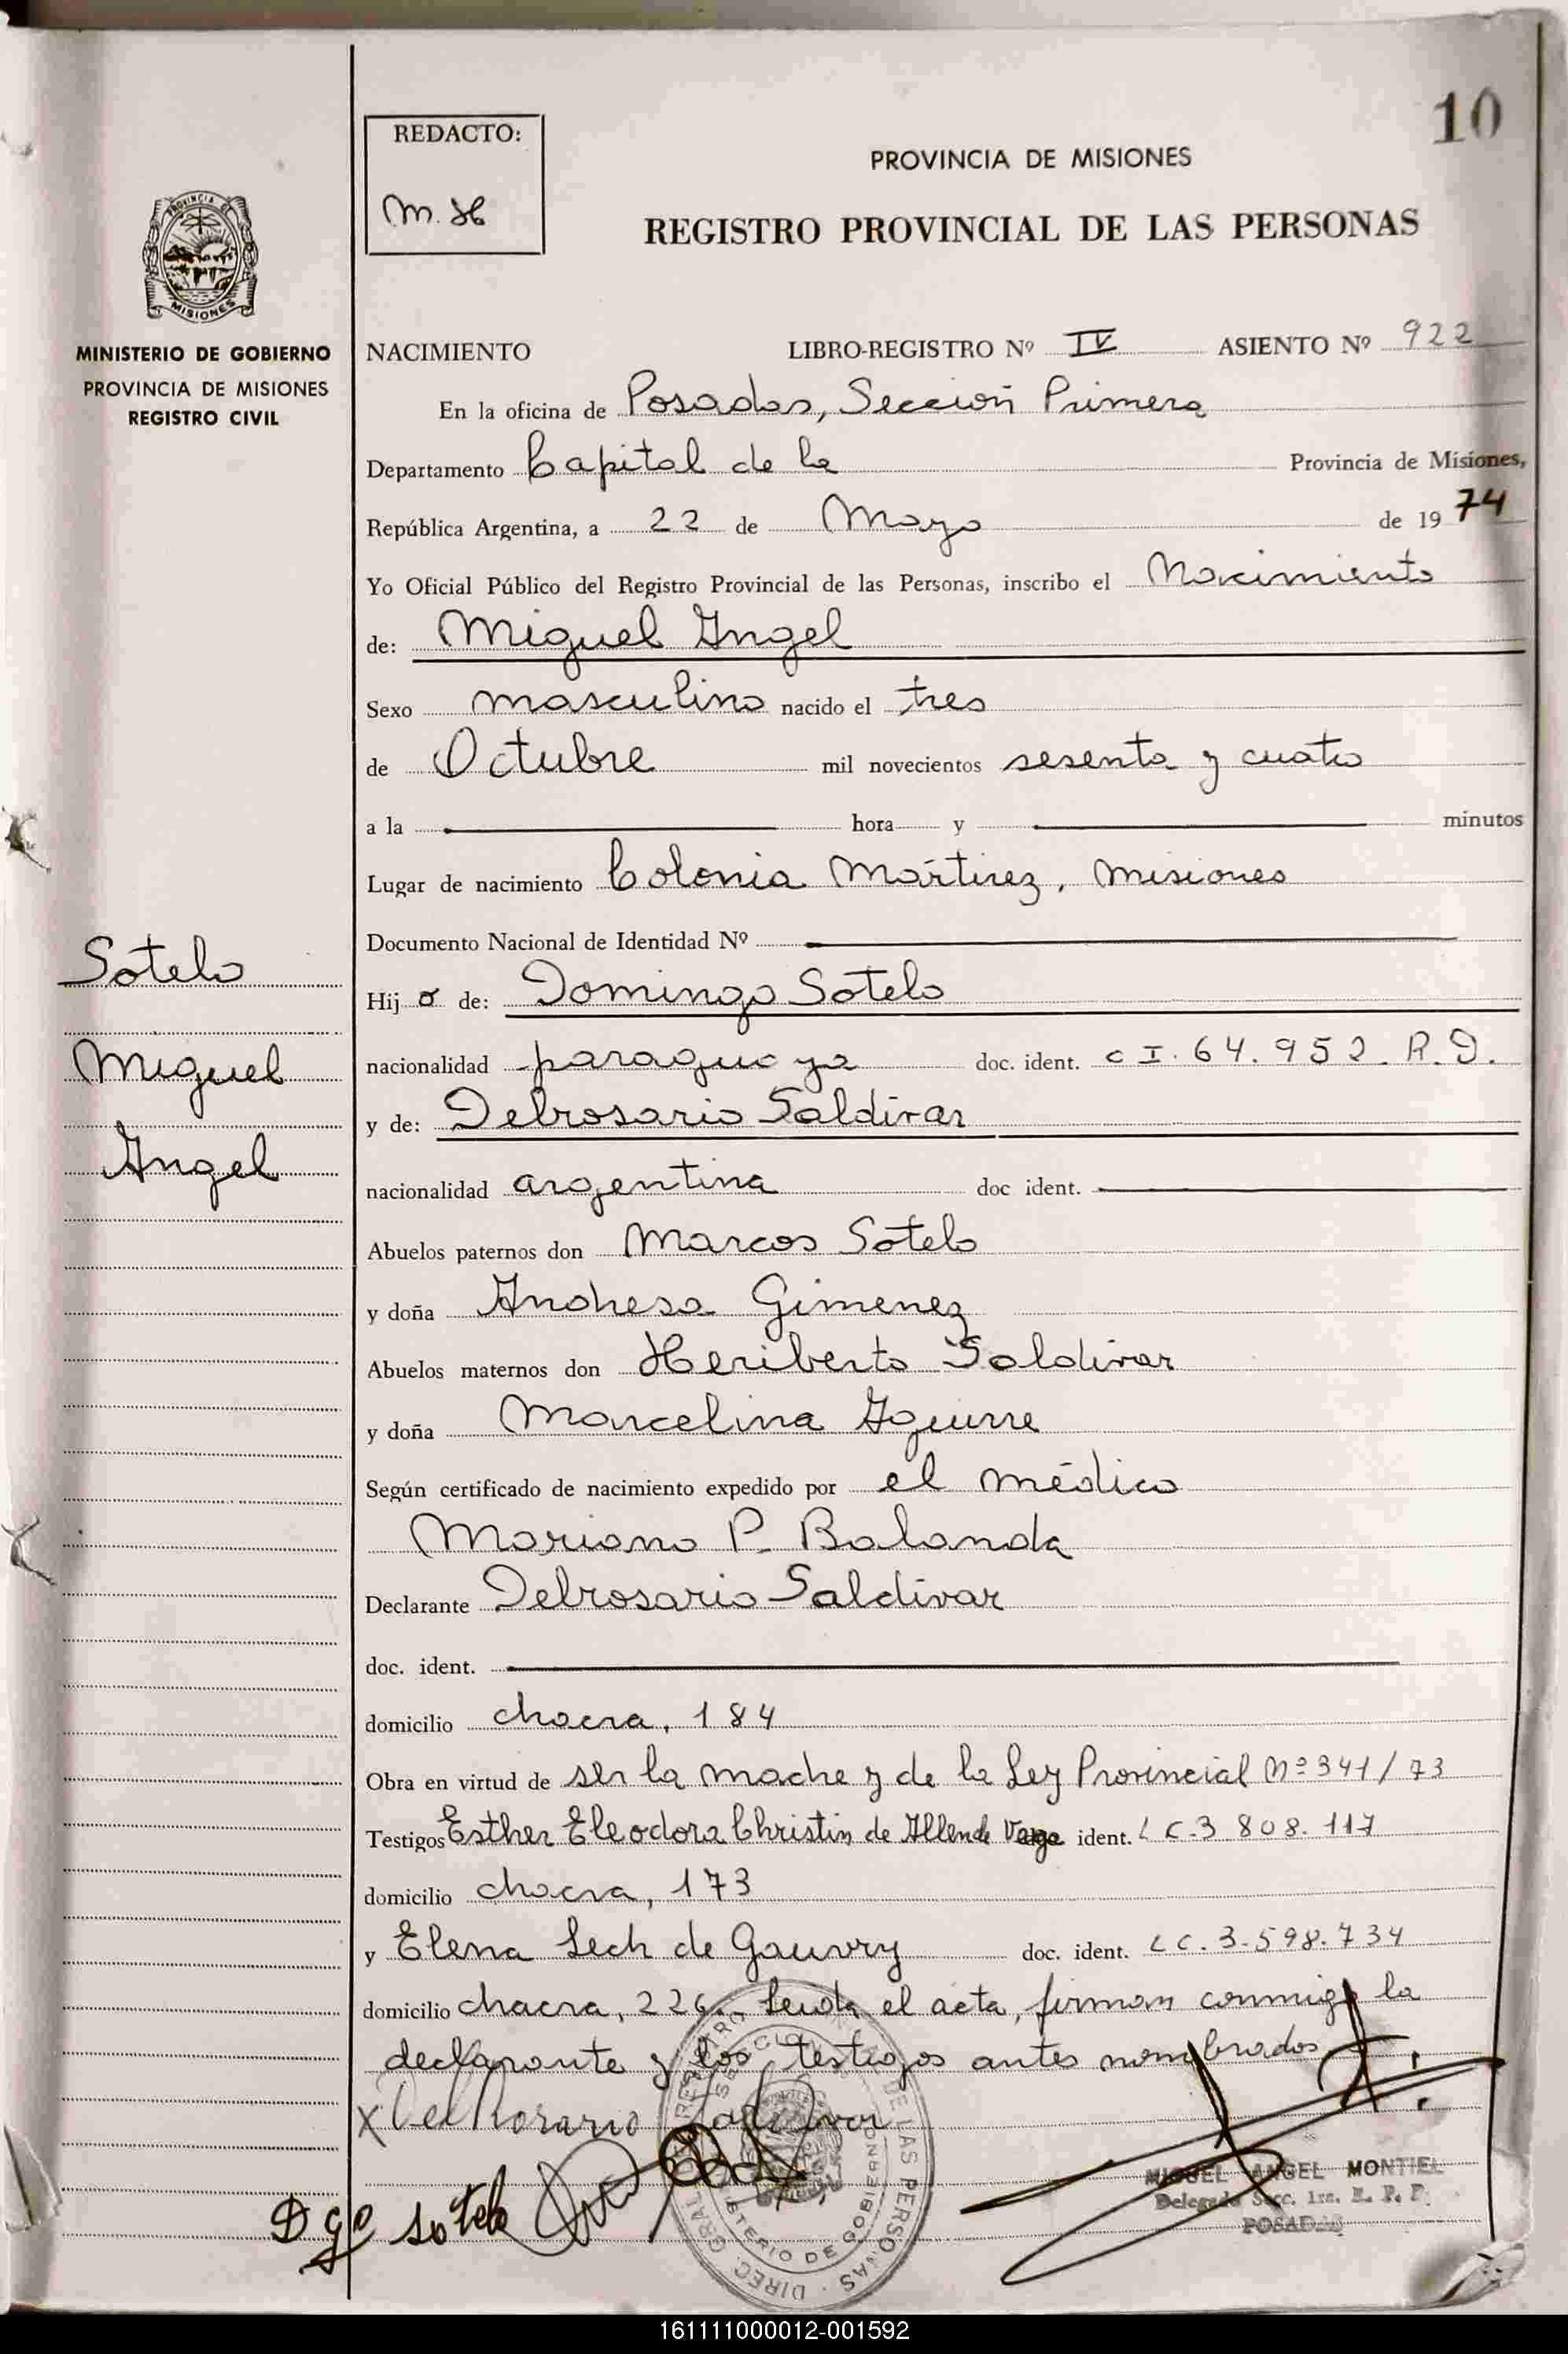 10
REDACTO:
M. H
PROVINCIA DE MISIONES
REGISTRO PROVINCIAL DE LAS PERSONAS
PROVINCIA DE
MISIONES
MINISTERIO DE GOBIERNO
PROVINCIA DE MISIONES
REGISTRO CIVIL
NACIMIENTO LIBRO-REGISTRO Nº IV ASIENTO Nº 922
En la oficina de Posadas, Sección Primera
Departamento Capital de la Provincia de Misiones,
República Argentina, a 22 de Mayo de 1974
Yo Oficial Público del Registro Provincial de las Personas, inscribo el Nacimiento
de: Miguel Angel
Sexo masculino nacido el tres
de Octubre mil novecientos sesenta y cuatro
a la hora y minutos
Lugar de nacimiento Colonia Mártirez, Misiones
Documento Nacional de Identidad Nº
Sotelo
Miguel
Angel
Hijo de: Domingo Sotelo
nacionalidad paraguaya doc. ident. C I. 64.952. R.D.
y de: Delrosario Saldivar
nacionalidad argentina doc ident.
Abuelos paternos don Marcos Sotelo
y doña Andresa Gimenez
Abuelos maternos don Heriberto Saldivar
y doña Marcelina Aguirre
Según certificado de nacimiento expedido por el médico
Mariano P. Balanda
Declarante Delrosario Saldivar
doc. ident.
domicilio chacra, 184
Obra en virtud de ser la madre y de la Ley Provincial Nº 341/73
Testigos Esther Eleodora Christin de Allende ident. L C.3 808.117
domicilio chacra, 173
y Elena Lech de Gauvry doc. ident. L C. 3.598.734
domicilio chacra, 226.- Leida el acta, firman conmigo la
declarante y los testigos antes nombrados.
X Del Rosario Saldivar
Dgo Sotelo
DIREC. GRAL. DE LAS PERSONAS
MINISTERIO DE GOBIERNO
MIGUEL ANGEL MONTIEL
Delegado Secc. 1ra. R. P. P.
POSADAS
161111000012-001592